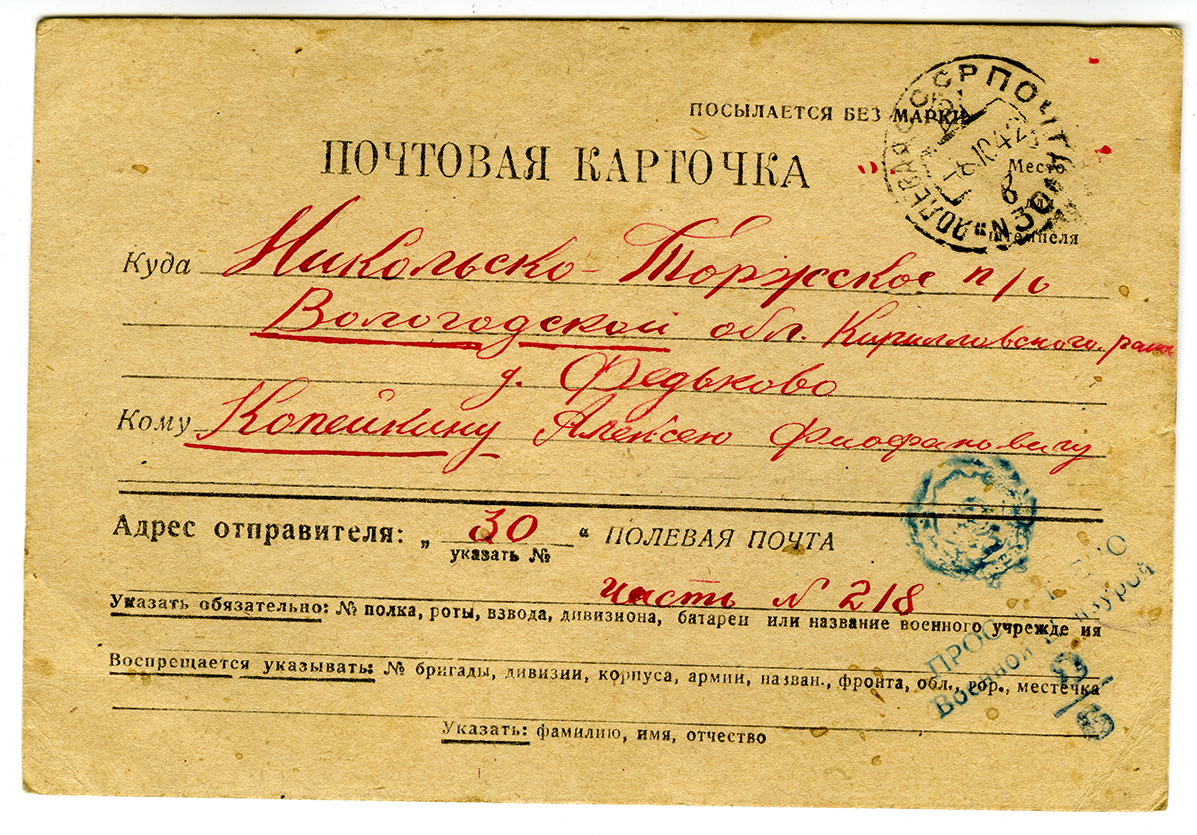 ПОСЫЛАЕТСЯ БЕЗ МАРКИ
ПОЧТОВАЯ КАРТОЧКА
СССР ПОЧТА
ПОЛЕВАЯ
№ 30
-8.10.42
Место
штемпеля
Куда Никольско-Торжское п/о
Вологодской обл. Кирилловского района
д. Федьково
Кому Копейкину Алексею Фиофановичу
Адрес отправителя: „ 30 “ ПОЛЕВАЯ ПОЧТА
указать №
часть № 218
Указать обязательно: № полка, роты, взвода, дивизиона, батареи или название военного учрежде ия
Воспрещается указывать: № бригады, дивизии, корпуса, армии, назван., фронта, обл., гор., местечка
Указать: фамилию, имя, отчество
Военной Цензурой